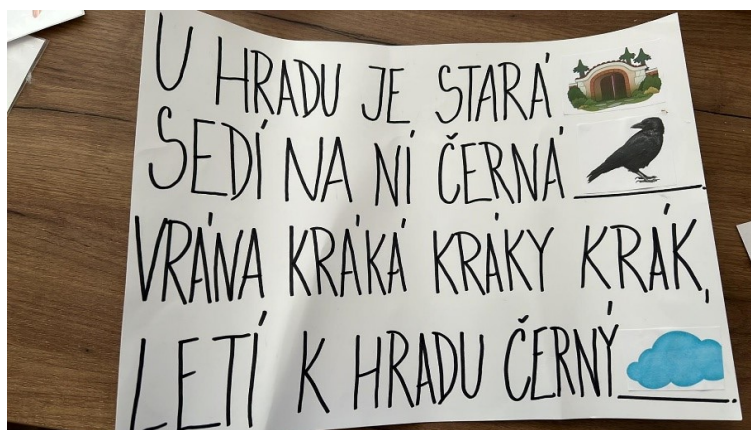 U HRADU JE STARÁ
SEDÍ NA NÍ ČERNÁ ______.
VRÁNA KRÁKÁ KRÁKY KRÁK,
LETÍ K HRADU ČERNÝ ______.